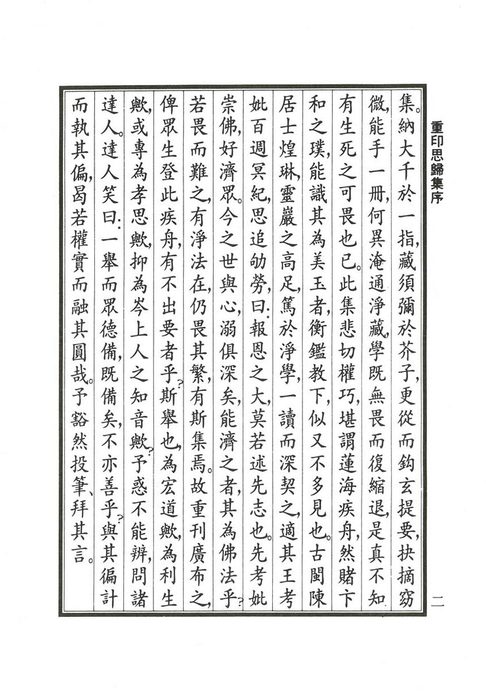 重印思歸集序
集。納大千於一指,藏須彌於芥子,更從而鈎玄提要,抉摘窈
微,能手一冊,何異淹通淨藏,學既無畏而復縮退,是真不知
有生死之可畏也已。此集悲切權巧,堪謂蓮海疾舟,然賭卞
和之璞,能識其為美玉者,衡鑑教下,似又不多見也。古閩陳
居士煌琳,靈巖之高足,篤於淨學,一讀而深契之,適其王考
妣百週冥紀,思追劬勞,曰:報恩之大,莫若述先志也。先考妣
崇佛,好濟眾。今之世與心,溺俱深矣,能濟之者,其為佛法乎?
若畏而難之,有淨法在,仍畏其繁,有斯集焉。故重刊廣布之,
俾眾生登此疾舟,有不出要者乎?斯舉也,為宏道歟,為利生
歟,或專為孝思歟,抑為岑上人之知音歟?予惑不能辨,問諸
達人。達人笑曰:一舉而眾德備,既備矣,不亦善乎?與其徧計
而執其偏,曷若權實而融其圓哉。予豁然投筆、拜其言。
二